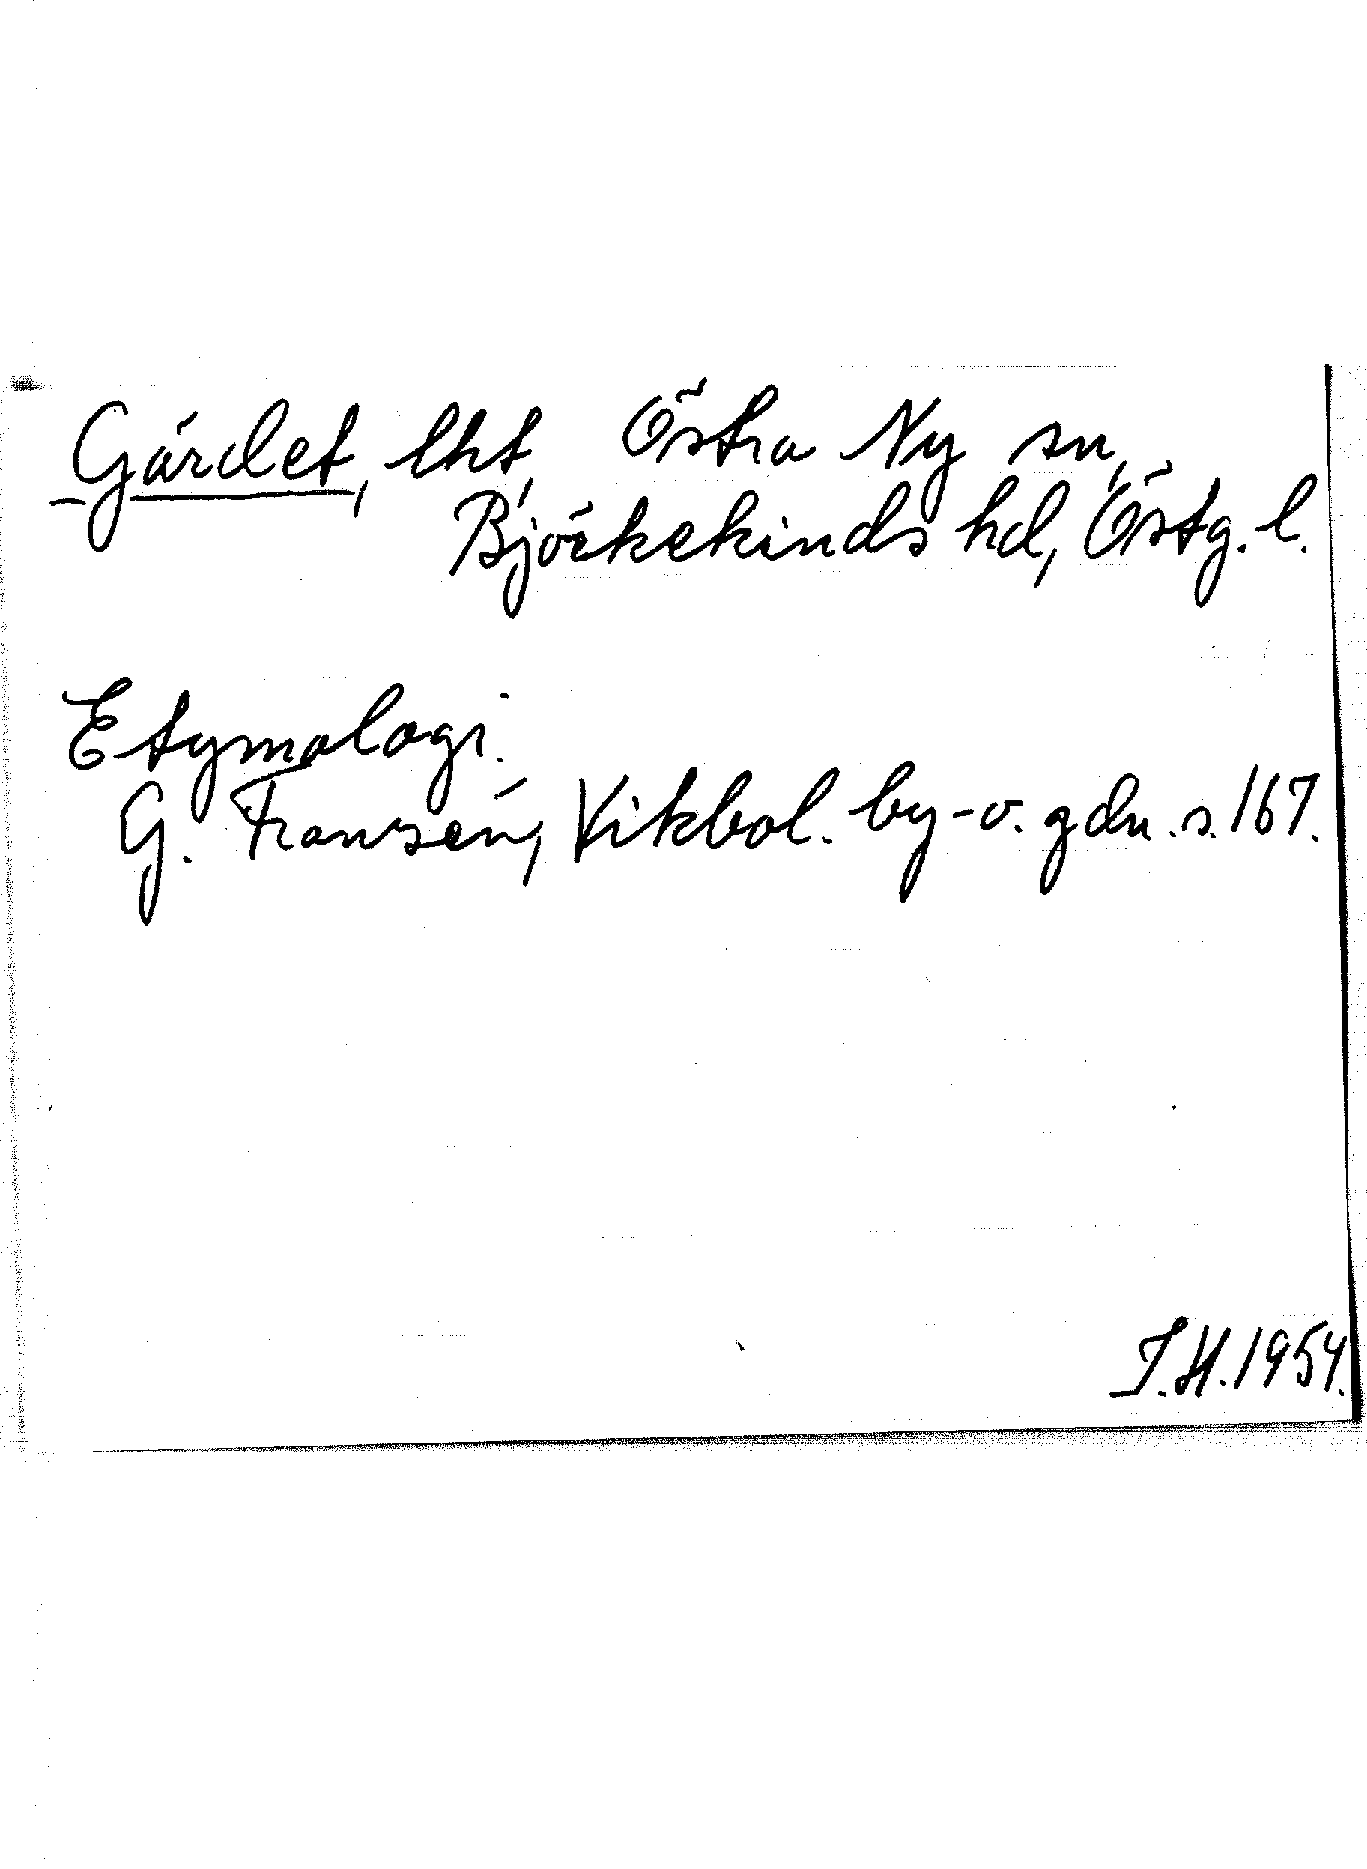 Gärdet, lht, Östra Ny sn,
Björkekinds hd, Östg. l.
Etymologi.
G. Franzén, Vikbol. by- o. gdn. s. 167.
J.H. 1954.